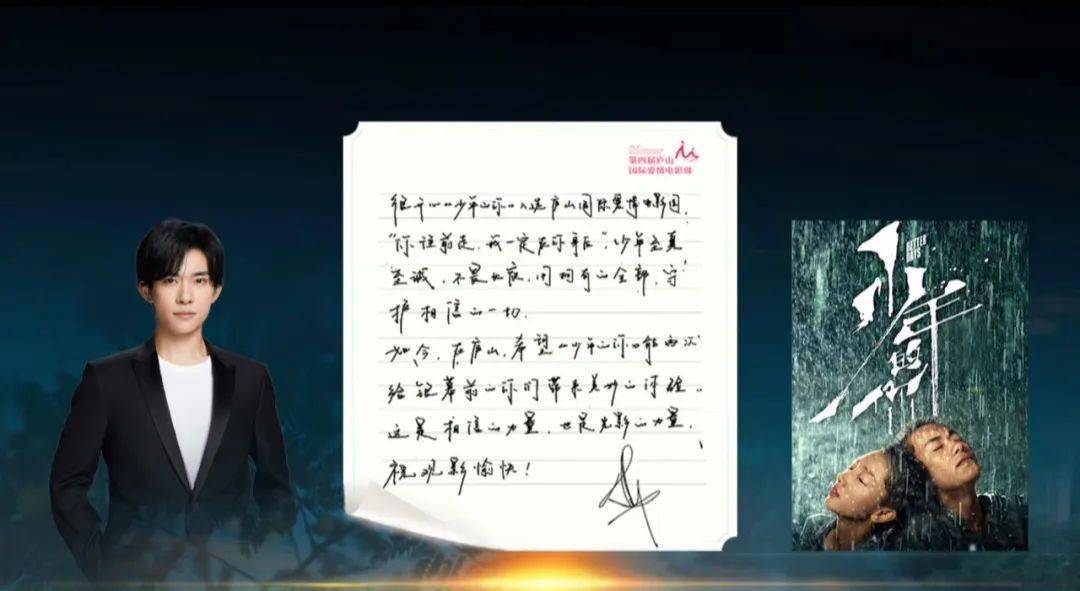 第四届庐山
国际爱情电影周
很开心《少年的你》入选庐山国际爱情电影周，
“你往前走，我一定在你身后”，少年至真
至诚，不畏　　，用拥有的全部，守
护相信的一切。
如今，在庐山，希望《少年的你》能再次
给银幕前的你们带来美好的体验。
这是相信的力量，也是光影的力量，
祝观影愉快！
少年的你
BETTER
DAYS